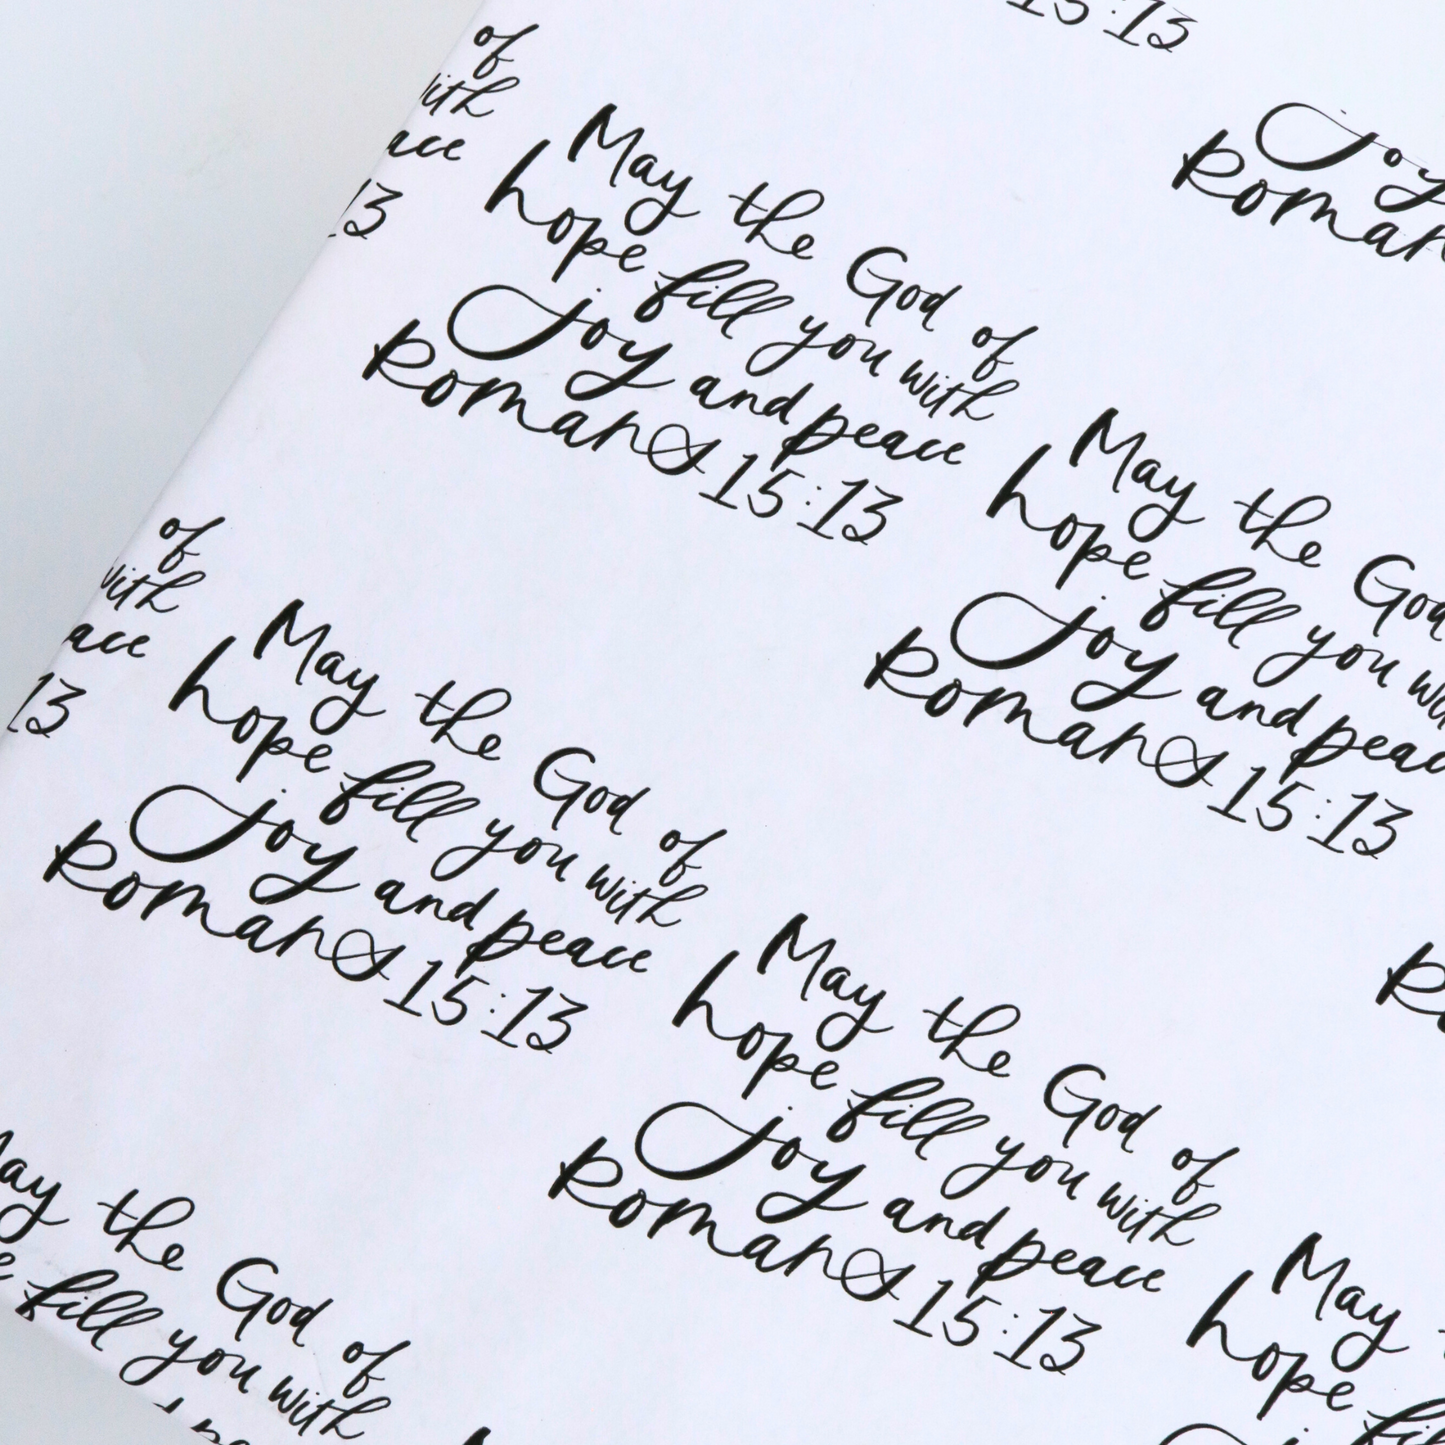 15:13
of
with
ace
13
May the God of
hope fill you with
joy and peace
Romans 15:13
joy
Roman
May the God
hope fill you with
joy and peace
Romans 15:13
of
with
ace
13
May the God of
hope fill you with
joy and peace
Romans 15:13
May the God of
hope fill you with
joy and peace
Romans 15:13
May the God of
fill you with
May
hope